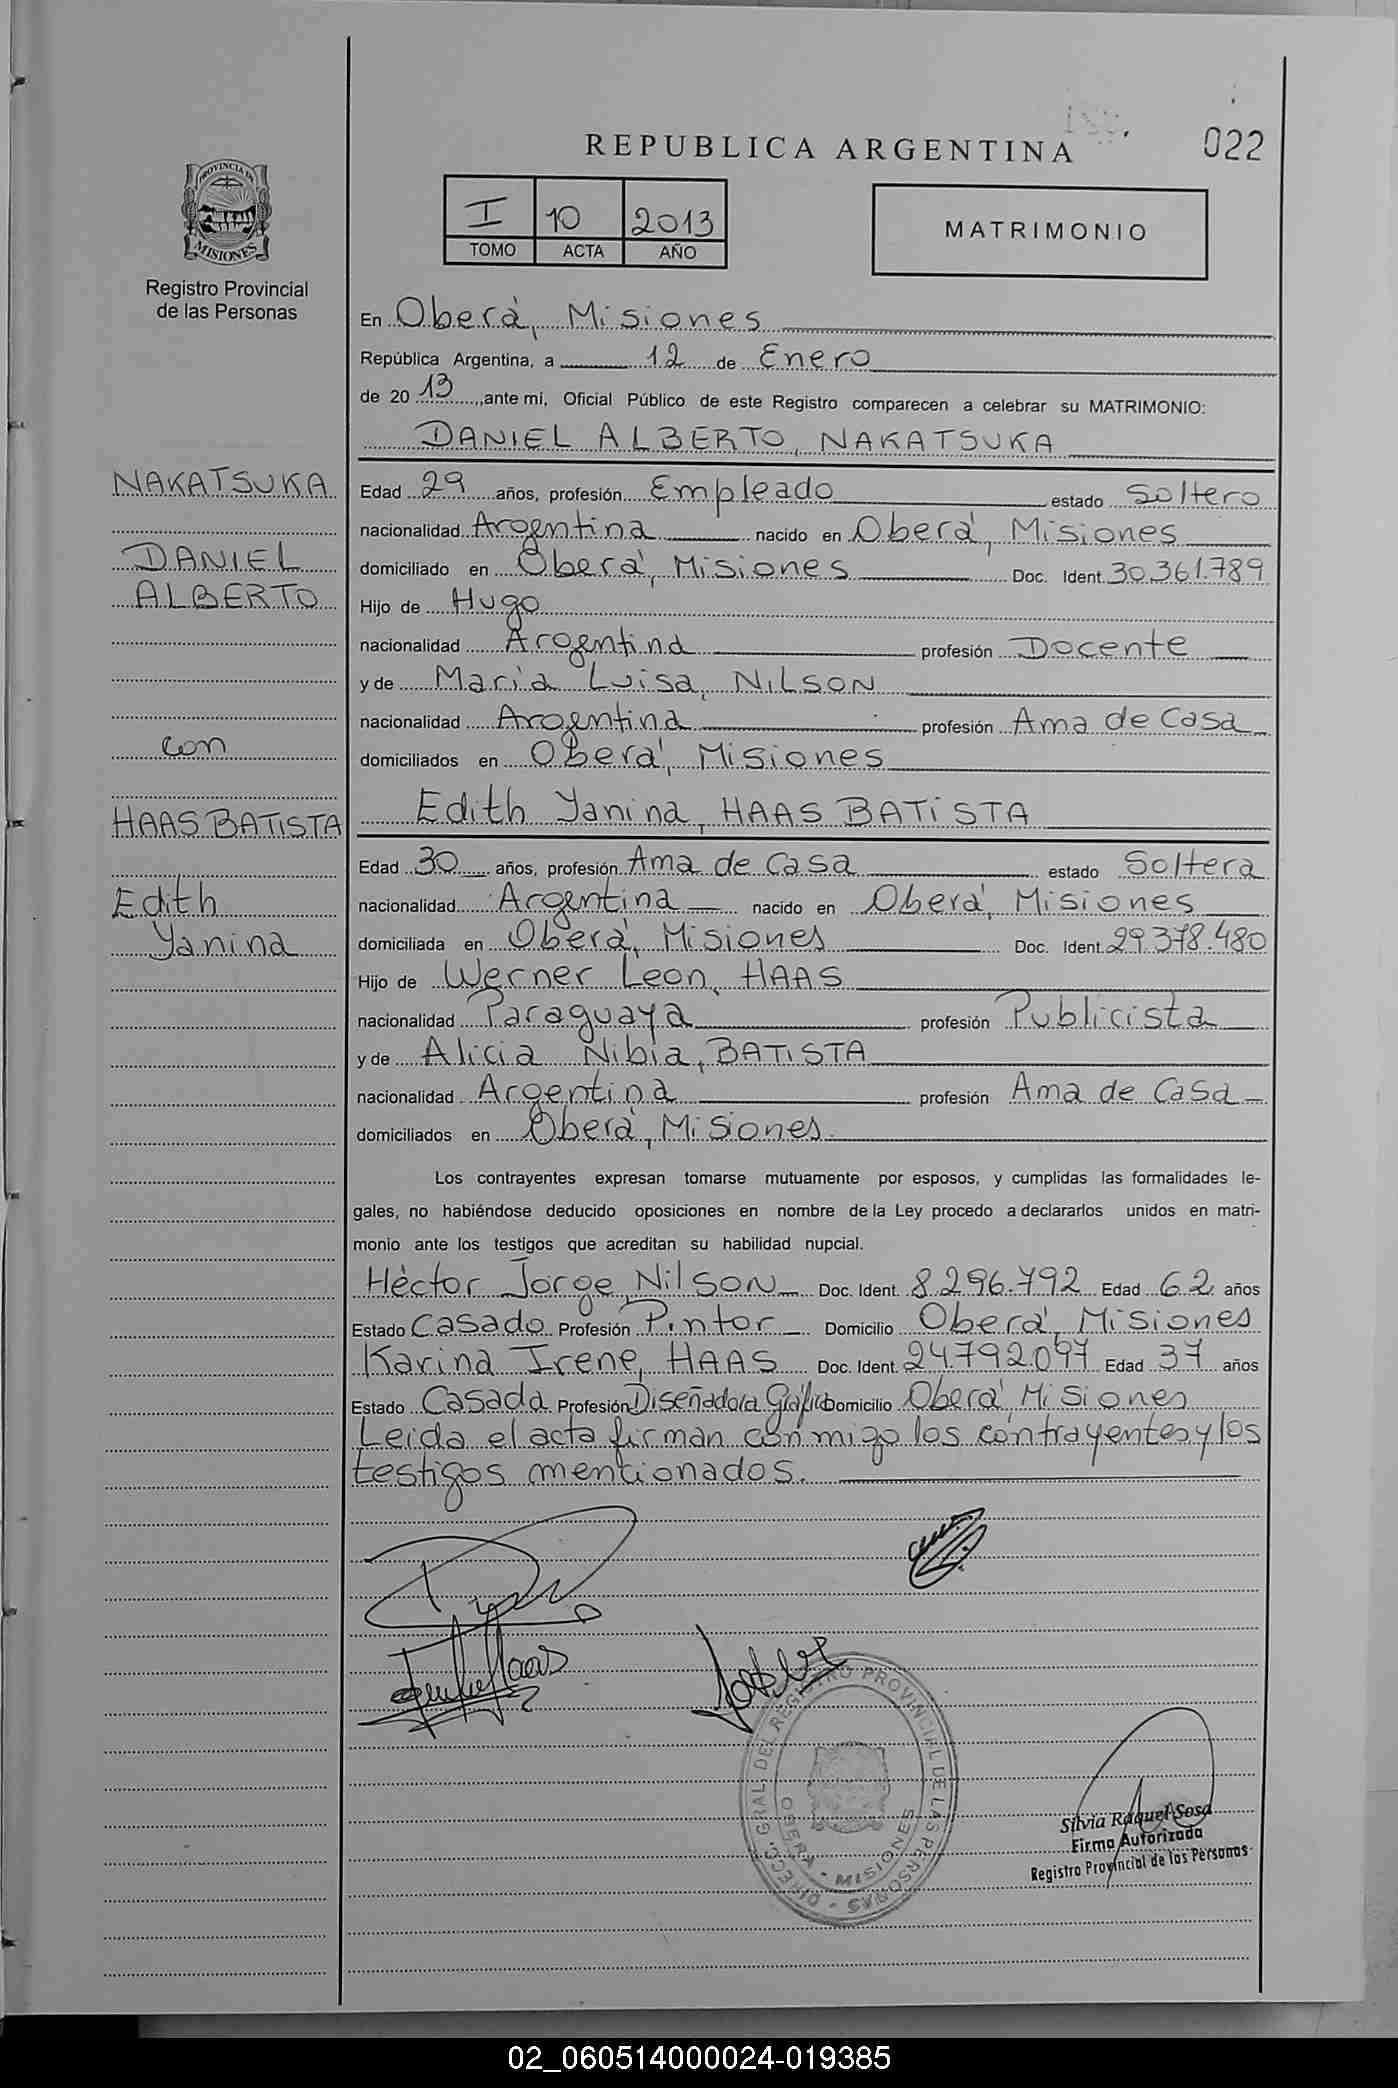 REPUBLICA ARGENTINA
022
PROVINCIA DE
MISIONES
Registro Provincial
de las Personas
I 10 2013
TOMO ACTA AÑO
MATRIMONIO
En Oberá, Misiones
República Argentina, a 12 de Enero
de 20 13, ante mí, Oficial Público de este Registro comparecen a celebrar su MATRIMONIO:
DANIEL ALBERTO, NAKATSUKA
NAKATSUKA
DANIEL
ALBERTO
con
HAAS BATISTA
Edith
Yanina
Edad 29 años, profesión Empleado estado Soltero
nacionalidad Argentina nacido en Oberá, Misiones
domiciliado en Oberá, Misiones Doc. Ident. 30.361.789
Hijo de Hugo
nacionalidad Argentina profesión Docente
y de María Luisa, NILSON
nacionalidad Argentina profesión Ama de Casa
domiciliados en Oberá, Misiones
Edith Yanina, HAAS BATISTA
Edad 30 años, profesión Ama de Casa estado Soltera
nacionalidad Argentina nacido en Oberá, Misiones
domiciliada en Oberá, Misiones Doc. Ident. 29.378.480
Hijo de Werner Leon, HAAS
nacionalidad Paraguaya profesión Publicista
y de Alicia Nibia, BATISTA
nacionalidad Argentina profesión Ama de Casa
domiciliados en Oberá, Misiones.
Los contrayentes expresan tomarse mutuamente por esposos, y cumplidas las formalidades le-
gales, no habiéndose deducido oposiciones en nombre de la Ley procedo a declararlos unidos en matri-
monio ante los testigos que acreditan su habilidad nupcial.
Héctor Jorge, NilSON Doc. Ident. 8.296.792 Edad 62 años
Estado Casado Profesión Pintor Domicilio Oberá, Misiones
Karina Irene, HAAS Doc. Ident. 24.792.097 Edad 37 años
Estado Casada Profesión Diseñadora Gráfic Domicilio Oberá, Misiones
Leida el acta firman conmigo los contrayentes y los
testigos mencionados.
Haas
DIRECC. GRAL. DEL REGISTRO PROVINCIAL DE LAS PERSONAS
OBERA - MISIONES
Silvia Raquel Sosa
Firma Autorizada
Registro Provincial de las Personas
02_060514000024-019385